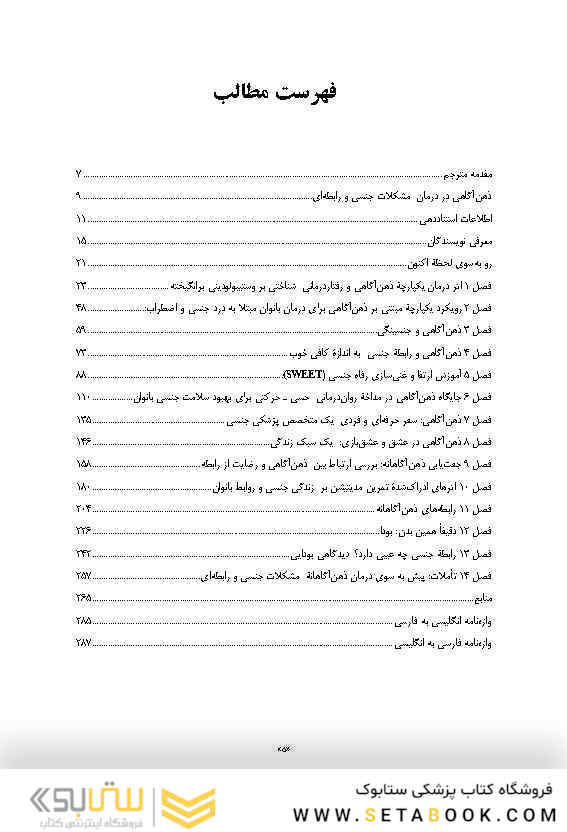 فهرست مطالب
مقدمه مترجم ۷
ذهن‌آگاهی در درمان مشکلات جنسی و رابطه‌ای ۹
اطلاعات استناددهی ۱۱
معرفی نویسندگان ۱۵
رو به‌سوی لحظهٔ اکنون ۲۱
فصل ۱ اثر درمان یکپارچهٔ ذهن‌آگاهی و رفتاردرمانی شناختی بر وستیبولودینی برانگیخته ۲۳
فصل ۲ رویکرد یکپارچهٔ مبتنی بر ذهن‌آگاهی برای درمان بانوان مبتلا به درد جنسی و اضطراب: ۴۸
فصل ۳ ذهن‌آگاهی و جنسینگی ۵۹
فصل ۴ ذهن‌آگاهی و رابطهٔ جنسی به اندازهٔ کافی خوب ۷۳
فصل ۵ آموزش ارتقا و غنی‌سازی رفاه جنسی (SWEET): ۸۸
فصل ۶ جایگاه ذهن‌آگاهی در مداخلهٔ روان‌درمانی حسی ـ حرکتی برای بهبود سلامت جنسی بانوان ۱۱۰
فصل ۷ ذهن‌آگاهی: سفر حرفه‌ای و فردی یک متخصص پزشکی جنسی ۱۳۵
فصل ۸ ذهن‌آگاهی در عشق و عشق‌بازی: یک سبک زندگی ۱۴۶
فصل ۹ جفت‌یابی ذهن‌آگاهانه: بررسی ارتباط بین ذهن‌آگاهی و رضایت از رابطه ۱۵۸
فصل ۱۰ اثرهای ادراک‌شدهٔ تمرین مدیتیشن بر زندگی جنسی و روابط بانوان ۱۸۰
فصل ۱۱ رابطه‌های ذهن‌آگاهانه ۲۰۴
فصل ۱۲ دقیقاً همین بدن: بودا ۲۲۶
فصل ۱۳ رابطهٔ جنسی چه عیبی دارد؟ دیدگاهی بودایی ۲۴۲
فصل ۱۴ تأملات: پیش به سوی درمان ذهن‌آگاهانهٔ مشکلات جنسی و رابطه‌ای ۲۵۷
منابع ۲۶۵
واژه‌نامه انگلیسی به فارسی ۲۸۵
واژه‌نامه فارسی به انگلیسی ۲۸۷
فروشگاه کتاب پزشکی ستابوک
WWW.SETABOOK.COM
ستابوک
فروشگاه اینترنتی کتاب